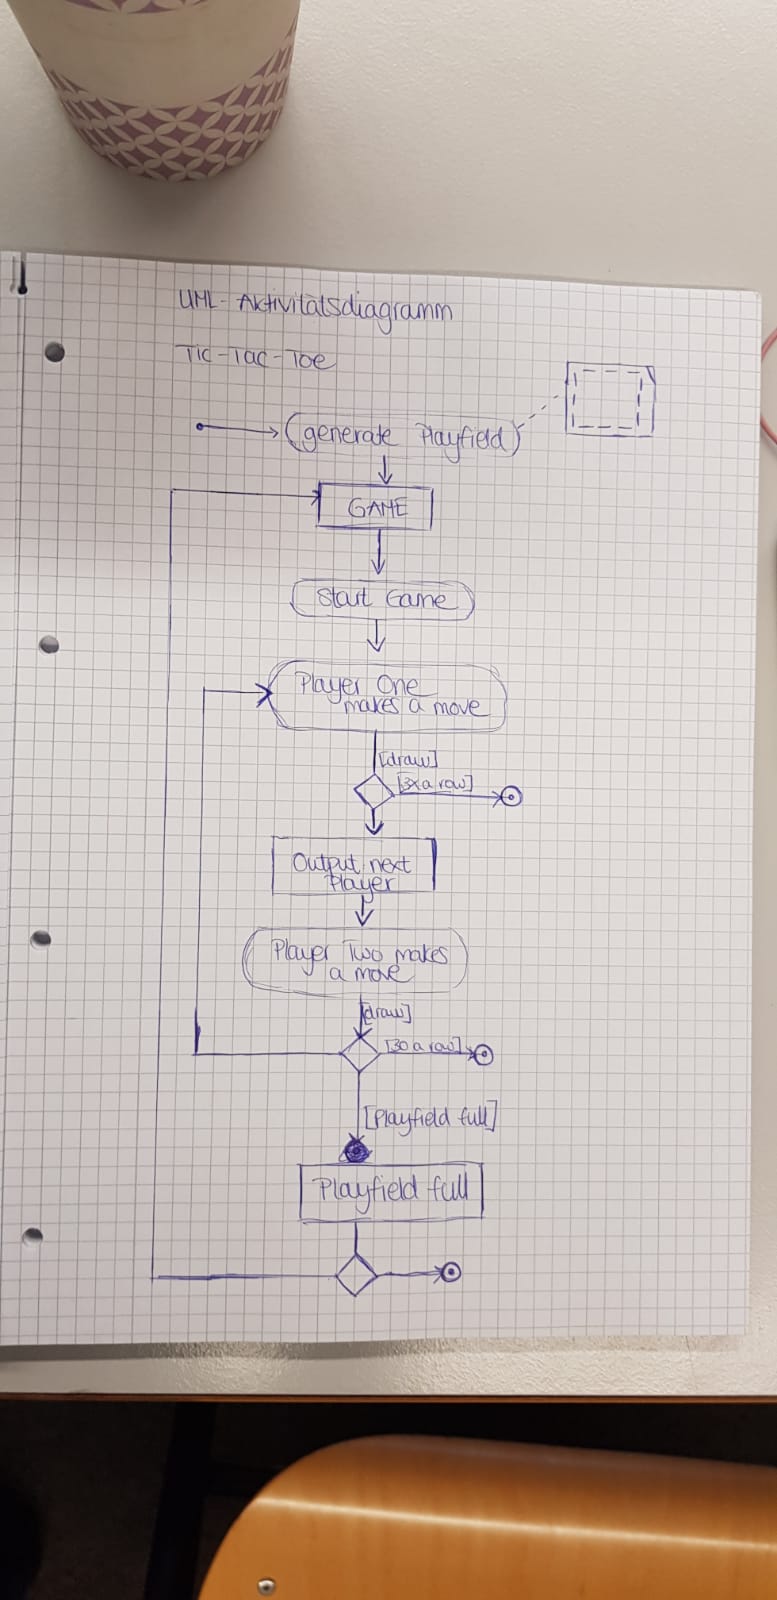 UML-Aktivitätsdiagramm
Tic-Tac-Toe
(generate Playfield)
GAME
Start Game
Player One
makes a move
[draw]
[3x a row]
Output next
Player
Player Two makes
a move
[draw]
[3o a row]
[Playfield full]
Playfield full